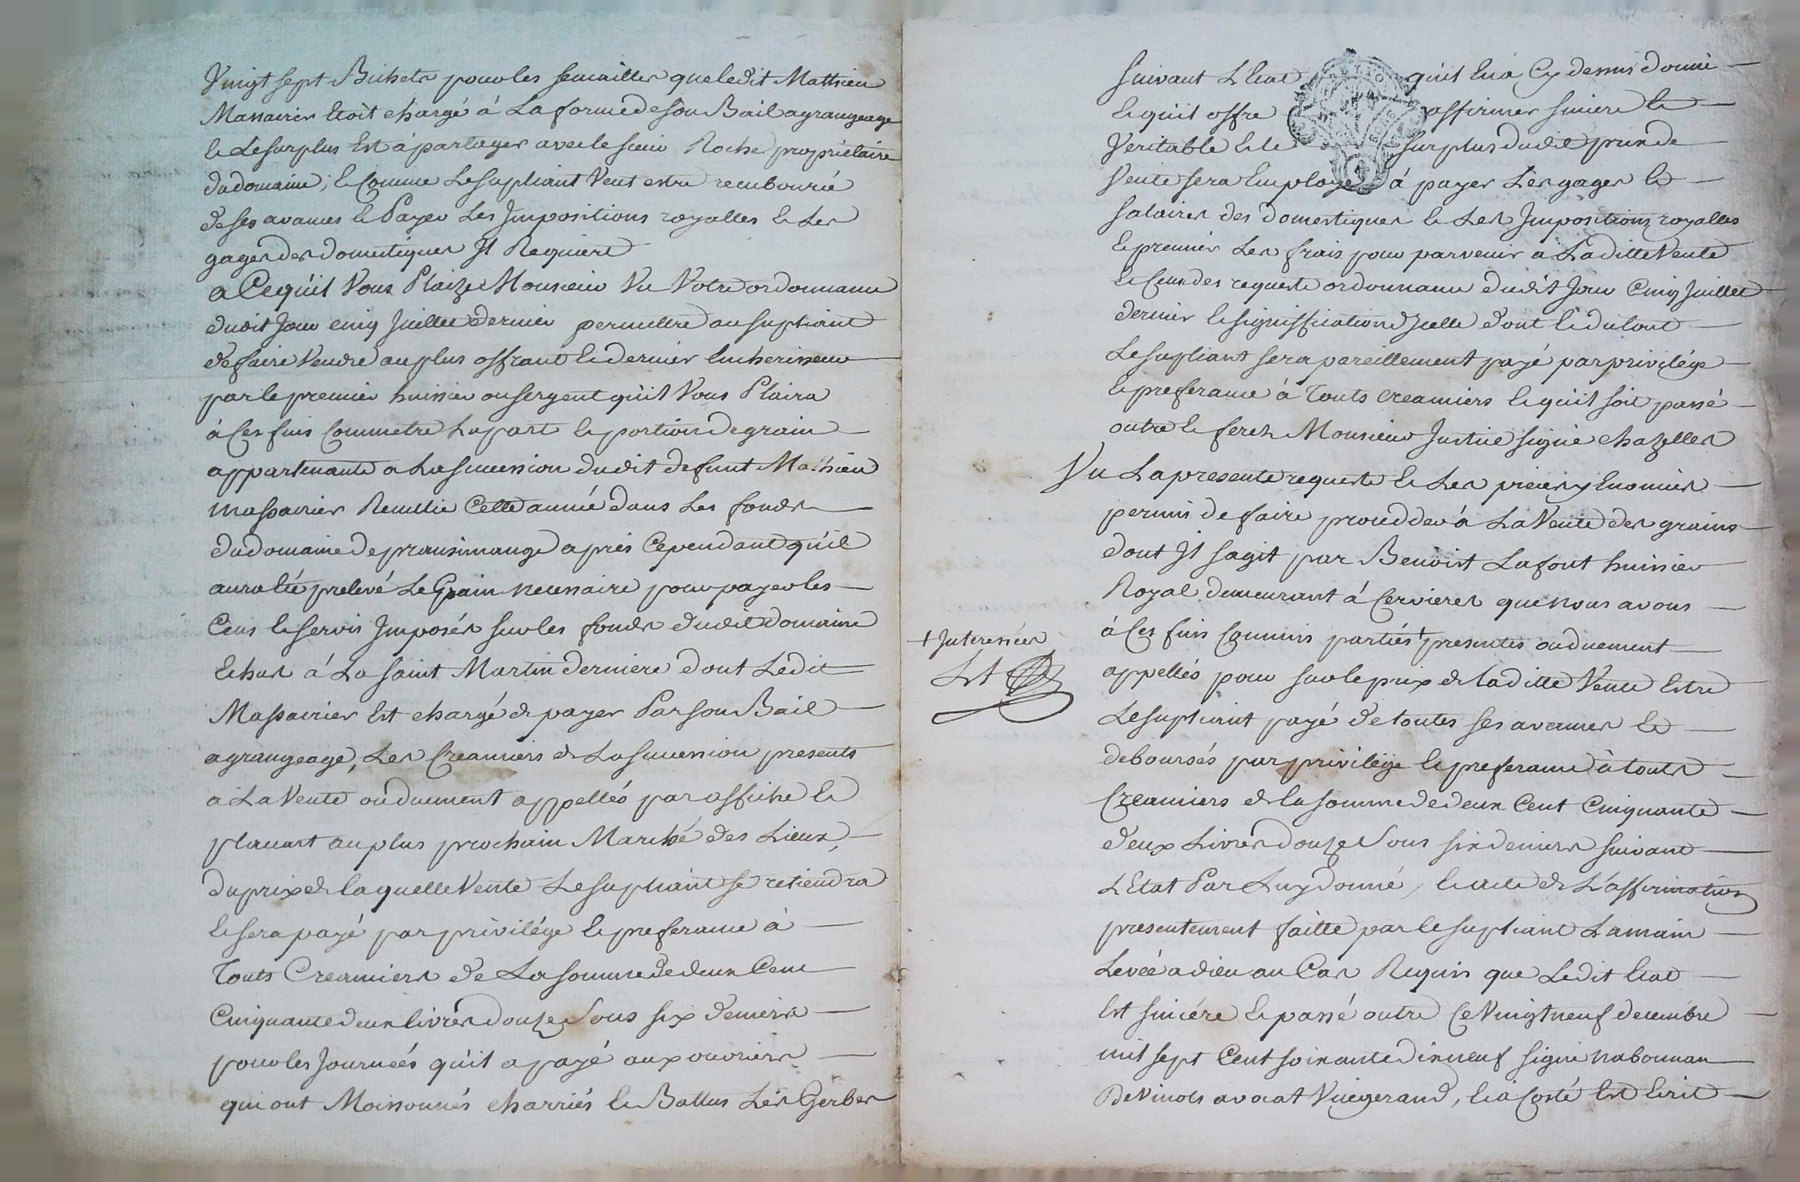 Vingt sept Bichets pour les semailles que ledit Mathieu
Massacrier Etoit chargé à La forme de son Bail agrangeage
le Le surplus Est à partager avec le sieur Roche propriétaire
du domaine, le Comme Le supliant Veut estre rembourcé
de ses avances le Payer Les Impositions royalles le Les
gages des domestiques Il Requiert
a Ce qu'il Vous Plaize Monsieur Vu Votre ordonnance
dudit Jour cinq Juillet dernier permettre au supliant
de faire Vendre au plus offrant le dernier Encherisseur
par le premier huissier ou sergent qu'il Vous Plaira
à Ces fins Commetre La part le portion de grain
appartenante a La succession dudit defunt Mathieu
massacrier Reuillie Cette année dans Les fonds
du domaine de pransimange après Cependant qu'il
aura été prelevé Le Grain necessaire pour payer les
Cens le servis Imposés sur les fonds dudit domaine
Echus à La saint Martin derniere dont Ledit
Massacrier Est chargé de payer Par son Bail
agrangeage, Les Creanciers de La succession presents
a La Vente ou duement appellés par affiche le
placart au plus prochain Marché des Lieux,
du prix de laquelle Vente Le supliant se retiendra
le sera payé par privilége le preferance à
Touts Creanciers de La somme de deux Cent
Cinquante deux livres douze sous six deniers
pour les Journées qu'il a payé aux ouvriers
qui ont Moissonnés charriés le Battus Les Gerbes
suivant L'Etat qu'il En a Cy dessus donné
le qu'il offre affirmer sincere le
Veritable le le surplus dudit prix de
Vente sera Employé à payer Les gages le
salaires des domestiques le Les Impositions royalles
le premier Les frais pour parvenir à La ditte Vente
le Ceux des requeste ordonnance dudit Jour Cinq Juillet
dernier le signiffication d'Icelle dont le du tout
Le supliant sera pareillement payé par privilége
le preferance à Touts creanciers le qu'il soit passé
outre le ferez Monsieur Justice signé chazelles
Vu La presente requeste le Les pieces y Enoncées
permis de faire proceder à La Vente des grains
dont Il sagit par Benoist Lafont huissier
Royal demeurant à Cervieres que nous avons
à Ces fins Commis parties + presentes ou duement
+ Interessées
appellés pour sur le prix de la ditte Vente Estre
Le supliant payé de toutes ses avances le
deboursés par privilége le preferance à touts
Creanciers de la somme de deux Cent Cinquante
deux Livres douze sous six deniers suivant
L'Etat Par Luy donné, le acte de L'affirmation
presentement faitte par le supliant La main
Levée a dieu au Cas Requis que Ledit Etat
Est sincére le passé outre Ce Vingt neuf decembre
mil sept Cent soixante dix neuf signé nabonnan
De Vinols avocat Vicegerand, le a Costé Est Ecrit